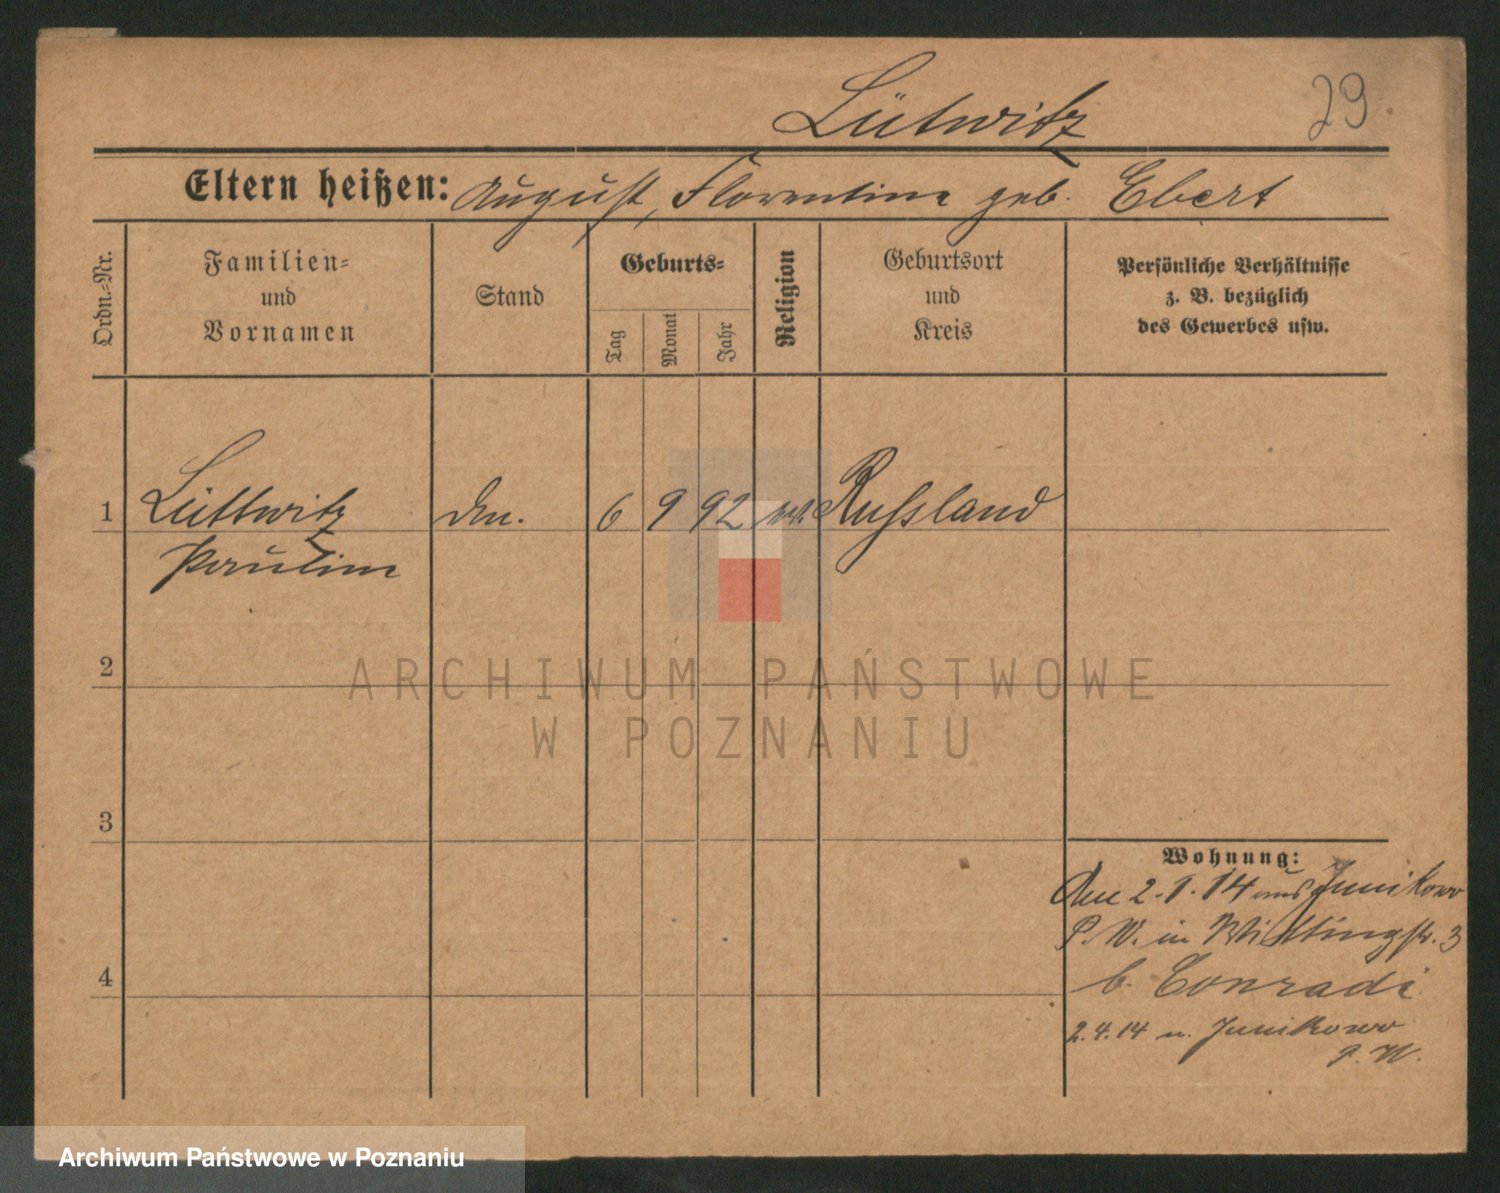 Lütwitz
29
Eltern heißen: August, Florentine geb. Ebert
Ordn.=Nr.
Familien=
und
Vornamen
Stand
Geburts=
Tag
Monat
Jahr
Religion
Geburtsort
und
Kreis
Persönliche Verhältnisse
z. B. bezüglich
des Gewerbes usw.
1 Lüttwitz 6 9 92 Russland
Pauline
2
ARCHIWUM PAŃSTWOWE
W POZNANIU
3
Wohnung:
2.1.14 aus Junikowo
P. W. in Wittingstr. 3
b. Conradi
4
2.4.14 n. Junikowo
P. W.
Archiwum Państwowe w Poznaniu